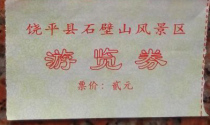 饶平县石壁山风景区
游览券
票价：贰元